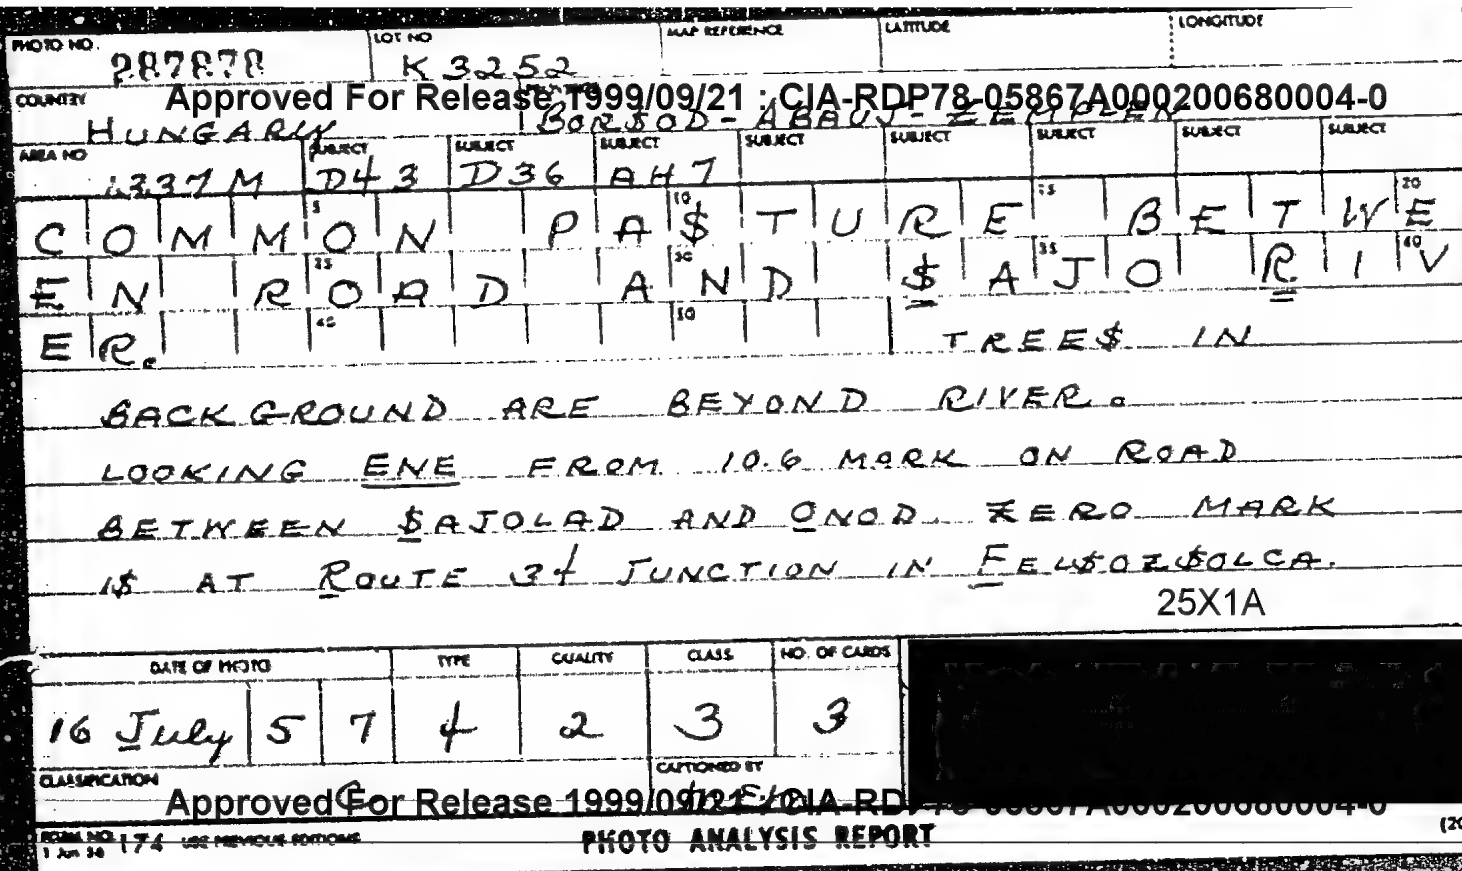 PHOTO NO. 287878 LOT NO K 3252 MAP REFERENCE LATITUDE LONGITUDE
Approved For Release 1999/09/21 : CIA-RDP78-05867A000200680004-0
COUNTRY HUNGARY BORSOD-ABAUJ-ZEMPLEN
AREA NO SUBJECT SUBJECT SUBJECT SUBJECT SUBJECT SUBJECT SUBJECT SUBJECT
337M D43 D36 AH7
5 10 15 20
COMMON PA$TURE BETWE
25 30 35 40
EN ROAD AND $AJO RIV
45 50
ER. TREE$ IN
BACKGROUND ARE BEYOND RIVER.
LOOKING ENE FROM 10.6 MARK ON ROAD
BETWEEN $AJOLAD AND ONOD. ZERO MARK
I$ AT ROUTE 34 JUNCTION IN FEL$OZ$OLCA.
25X1A
DATE OF PHOTO TYPE QUALITY CLASS NO. OF CARDS
16 July 57 4 2 3 3
CLASSIFICATION CAPTIONED BY
Approved For Release 1999/09/21 : CIA-RDP78-05867A000200680004-0
FORM NO. 174 USE PREVIOUS EDITIONS PHOTO ANALYSIS REPORT (20
1 Jun 56